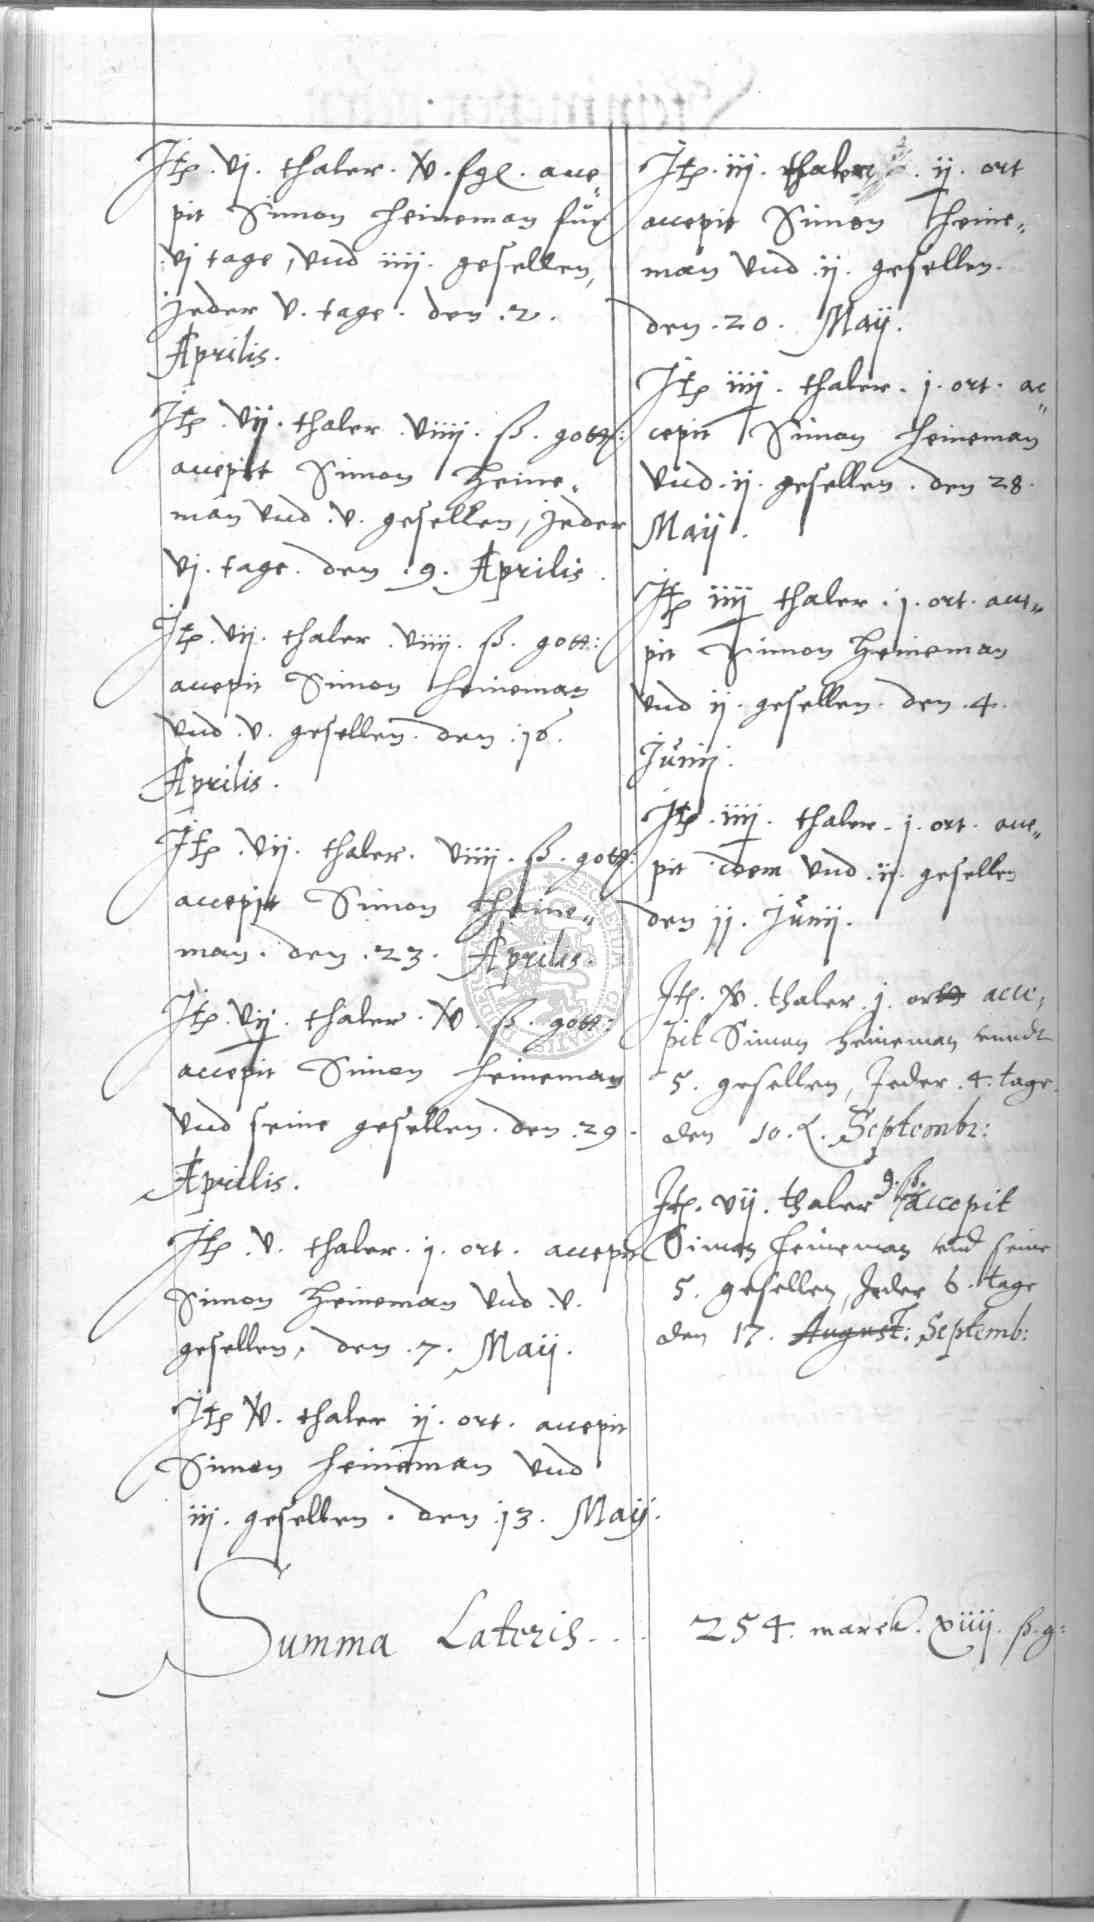 Itē. vj. thaler. xv. sgl. acce-
pit Simon Heineman für
vj tage, vnd iiij. gesellen,
jeder v. tage. den .2.
Aprilis.
Itē. vij. thaler. viiij. ß. gott:
accepit Simon Heine-
man vnd .v. gesellen, jeder
vj. tage. den .9. Aprilis.
Itē. vij. thaler. viiij. ß. gott:
accepit Simon Heineman
vnd .v. gesellen. den .16.
Aprilis.
Itē. vij. thaler. viiij. ß. gott:
accepit Simon Heine-
man. den .23. Aprilis.
Itē. vij. thaler. xv. ß. gott:
accepit Simon Heineman
vnd seine gesellen. den .29.
Aprilis.
Itē. v. thaler. j. ort. accepit
Simon Heineman vnd .v.
gesellen, den .7. Maij.
Itē xv. thaler ij. ort. accepit
Simon Heineman vnd
iij. gesellen. den 13. Maij.
Itē. iij. thaler. ij. ort
accepit Simon Heine-
man vnd .ij. gesellen.
den .20. Maij.
Itē iiij. thaler. j. ort. ac-
cepit Simon Heineman
vnd .ij. gesellen. den 28.
Maij.
Itē iiij thaler. j. ort. acce-
pit Simon Heineman
vnd ij. gesellen. den .4.
Junij.
Itē. iiij. thaler. j. ort. acce-
pit idem vnd .ij. gesellen
den 11. Junij.
Itē. xv. thaler. j. ort acce-
pit Simon Heineman vnndt
5. gesellen, Jeder .4. tage.
den 10. Septembr:
Itē. vij. thaler 9. ß. accepit
Simon Heineman vnd seine
5. gesellen, Jeder 6. tage
den 17. August: Septemb:
Summa Lateris... 254. marck. xiiij. ß. g: